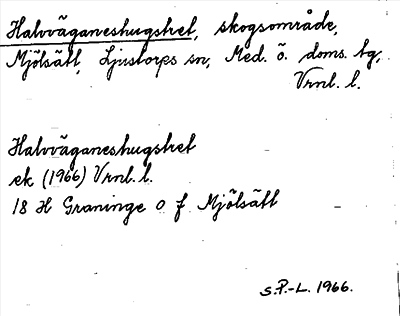 Halvväganeshugstret, skogsområde,
Mjölsätt, Ljustorps sn, Med. ö. doms. tg,
Vrnl. l.
Halvväganeshugstret
ek (1966) Vrnl. l.
18 H Graninge o f Mjölsätt
S.P.-L. 1966.